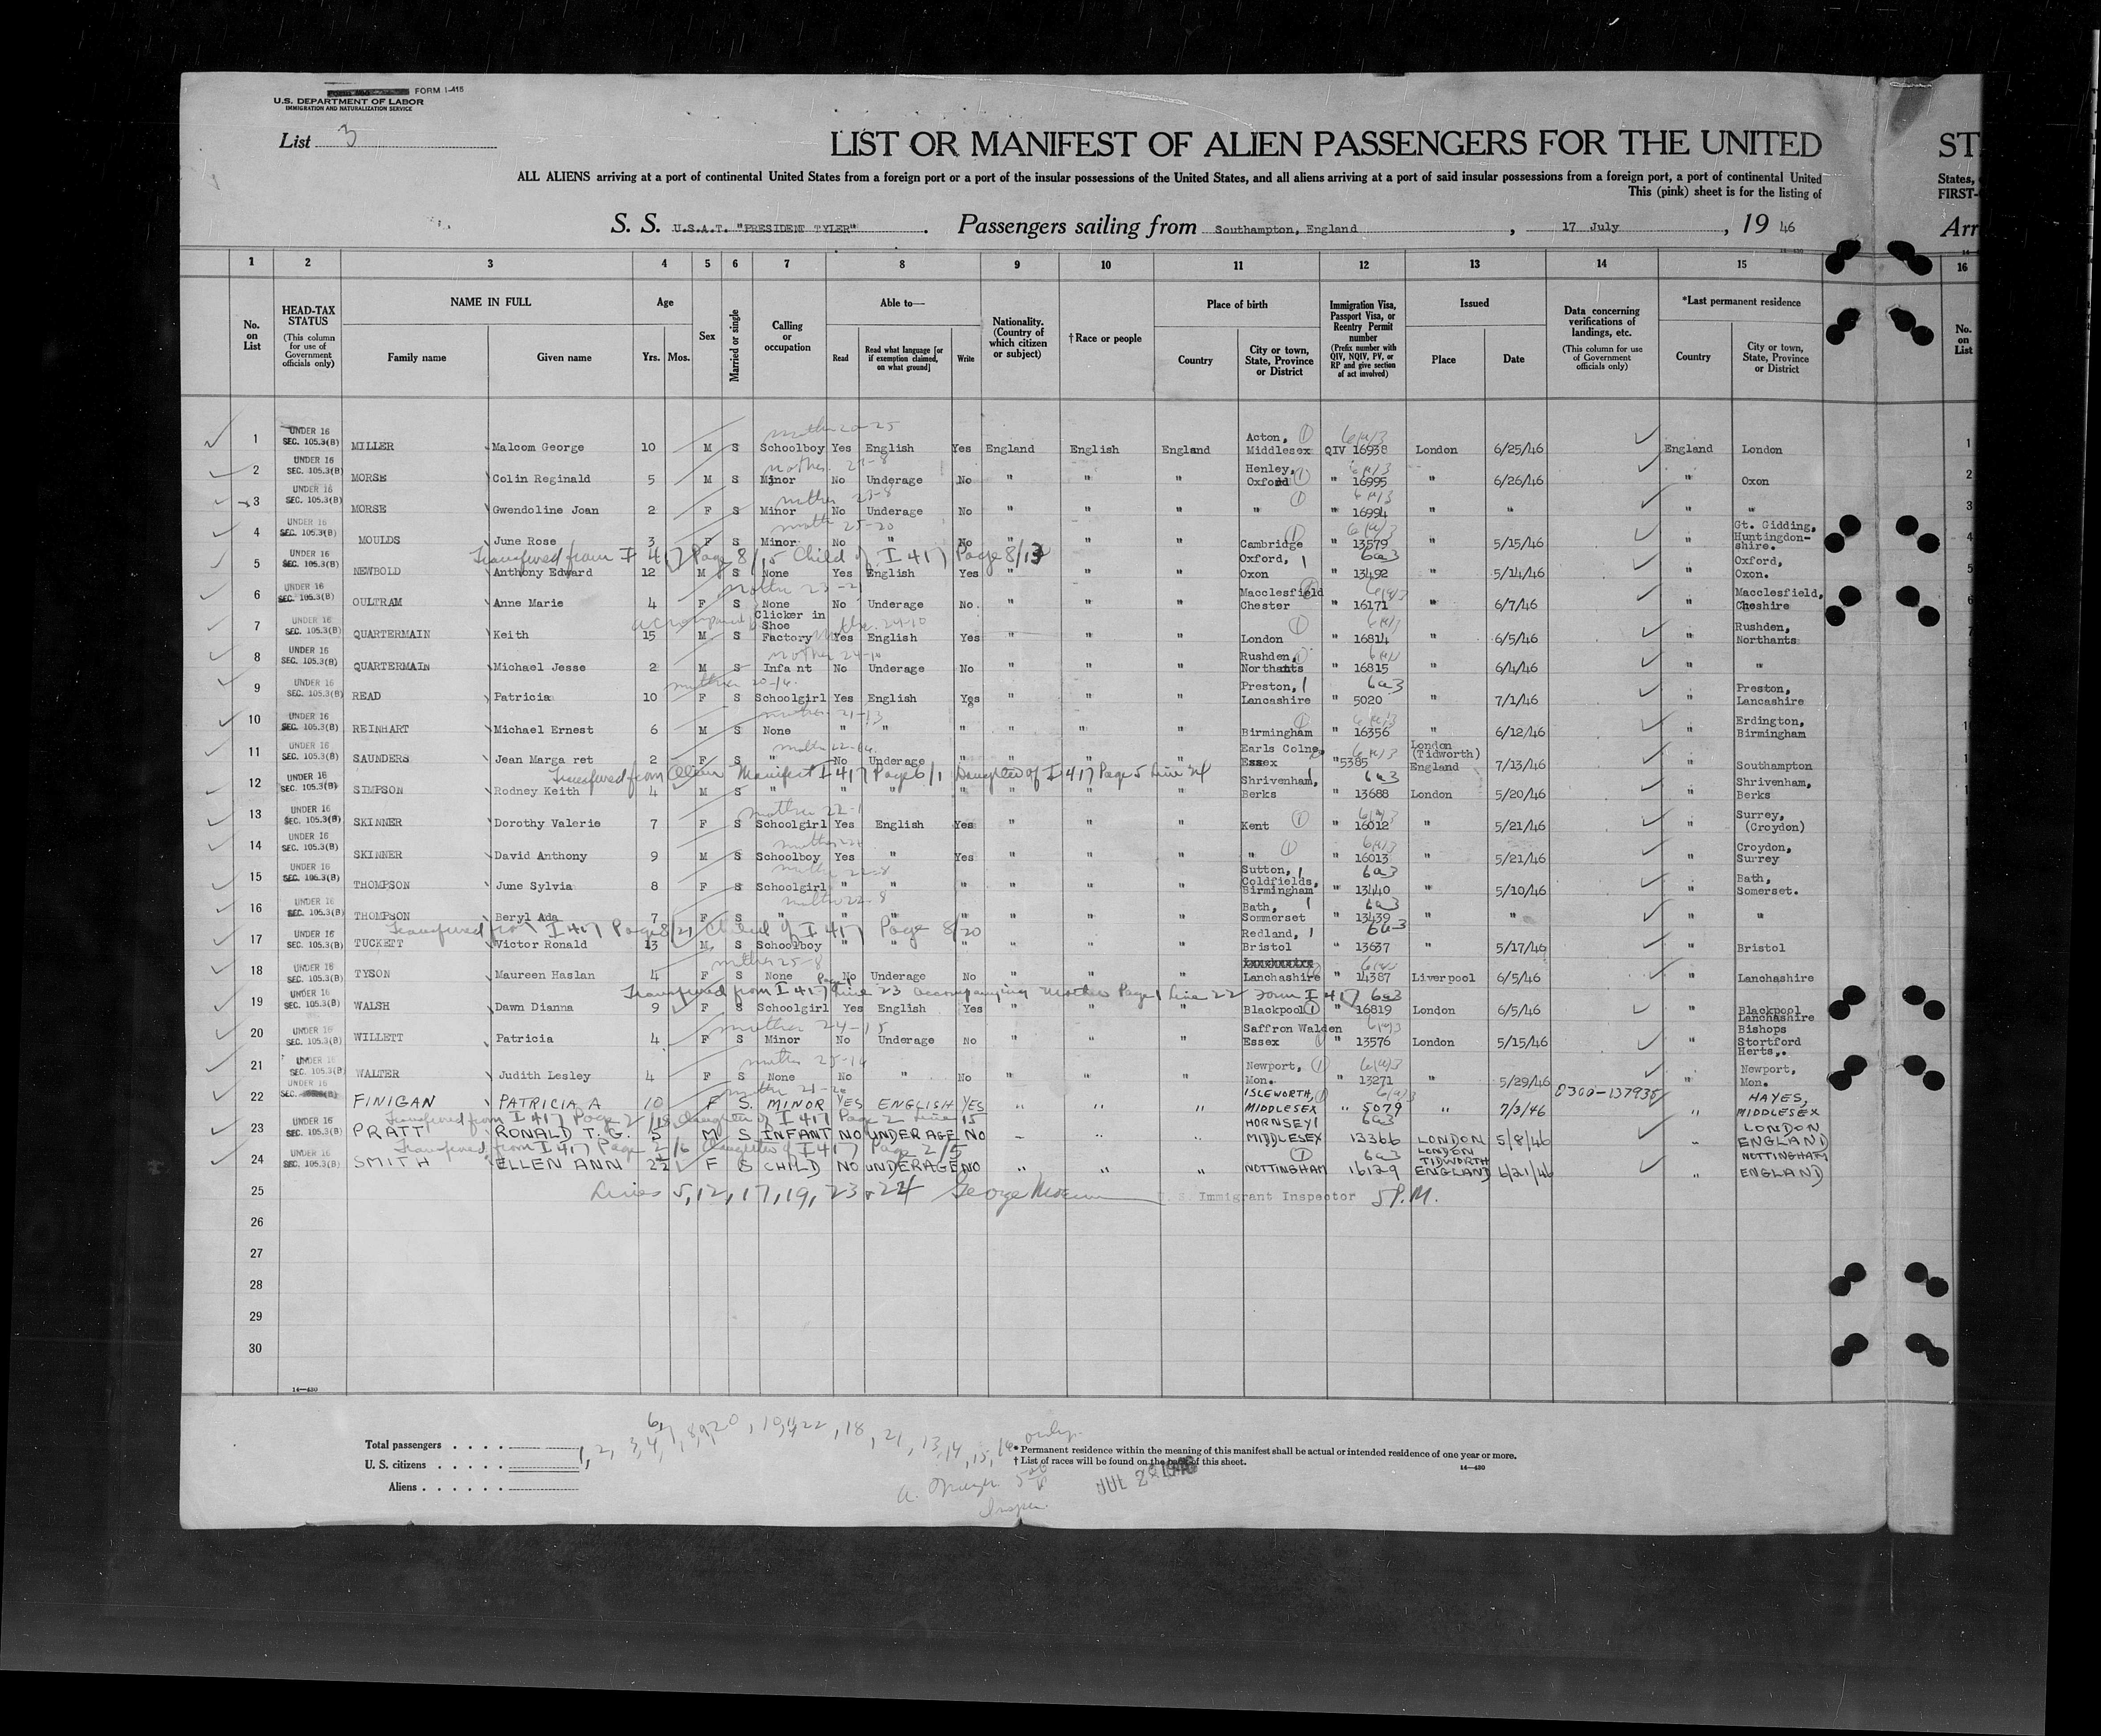 FORM I-415
U.S. DEPARTMENT OF LABOR
IMMIGRATION AND NATURALIZATION SERVICE
List 3
LIST OR MANIFEST OF ALIEN PASSENGERS FOR THE UNITED ST
ALL ALIENS arriving at a port of continental United States from a foreign port or a port of the insular possessions of the United States, and all aliens arriving at a port of said insular possessions from a foreign port, a port of continental United States,
This (pink) sheet is for the listing of FIRST-
S. S. U.S.A.T. "PRESIDENT TYLER". Passengers sailing from Southampton, England, 17 July, 19 46 Arr
14—430
1 2 3 4 5 6 7 8 9 10 11 12 13 14 15 16
No. on List
HEAD-TAX STATUS (This column for use of Government officials only)
NAME IN FULL Family name Given name
Age Yrs. Mos.
Sex
Married or single
Calling or occupation
Able to— Read Read what language [or if exemption claimed, on what ground] Write
Nationality. (Country of which citizen or subject)
†Race or people
Place of birth Country City or town, State, Province or District
Immigration Visa, Passport Visa, or Reentry Permit number (Prefix number with QIV, NQIV, PV, or RP and give section of act involved)
Issued Place Date
Data concerning verifications of landings, etc. (This column for use of Government officials only)
*Last permanent residence Country City or town, State, Province or District
No. on List
mother 20-25
1 UNDER 16 SEC. 105.3(B) MILLER Malcom George 10 M S Schoolboy Yes English Yes England English England Acton, Middlesex QIV 16938 London 6/25/46 England London 1
mother 23-8
2 UNDER 16 SEC. 105.3(B) MORSE Colin Reginald 5 M S Minor No Underage No " " " Henley, Oxford " 16995 " 6/26/46 " Oxon 2
mother 23-8
3 UNDER 16 SEC. 105.3(B) MORSE Gwendoline Joan 2 F S Minor No Underage No " " " " " 16994 " " " " 3
mother 25-20
4 UNDER 16 SEC. 105.3(B) MOULDS June Rose 3 F S Minor No " No " " " Cambridge " 13579 " 5/15/46 " Gt. Gidding, Huntingdon-shire. 4
Transfered from I 417 Page 8/15 Child of I 417 Page 8/13
5 UNDER 16 SEC. 105.3(B) NEWBOLD Anthony Edward 12 M S None Yes English Yes " " " Oxford, Oxon 6a3 " 13492 " 5/14/46 " Oxford, Oxon. 5
mother 23-21
6 UNDER 16 SEC. 105.3(B) OULTRAM Anne Marie 4 F S None No Underage No. " " " Macclesfield Chester " 16171 " 6/7/46 " Macclesfield, Cheshire 6
7 UNDER 16 SEC. 105.3(B) QUARTERMAIN Keith 15 M S Clicker in Shoe Factory Yes English Yes " " " London " 16814 " 6/5/46 " Rushden, Northants 7
mother 24-10
8 UNDER 16 SEC. 105.3(B) QUARTERMAIN Michael Jesse 2 M S Infa nt No Underage No " " " Rushden, Northants " 16815 " 6/4/46 " "
mother 20-16.
9 UNDER 16 SEC. 105.3(B) READ Patricia 10 F S Schoolgirl Yes English Yes " " " Preston, Lancashire 6a3 " 5020 " 7/1/46 " Preston, Lancashire
mother 21-13
10 UNDER 16 SEC. 105.3(B) REINHART Michael Ernest 6 M S None " " " " " " Birmingham " 16356 " 6/12/46 " Erdington, Birmingham
11 UNDER 16 SEC. 105.3(B) SAUNDERS Jean Marga ret 2 F S " No Underage " " " " Earls Colne, Essex "5385 London (Tidworth) England 7/13/46 " Southampton
Transfered from Alien Manifest I 417 Page 6/1 Daughter of I 417 Page 5 Line 24
12 UNDER 16 SEC. 105.3(B) SIMPSON Rodney Keith 4 M S " " " " " " " Shrivenham, Berks 6a3 " 13688 London 5/20/46 " Shrivenham, Berks
mother 22-1
13 UNDER 16 SEC. 105.3(B) SKINNER Dorothy Valerie 7 F S Schoolgirl Yes English Yes " " " Kent " 16012 " 5/21/46 " Surrey, (Croydon)
14 UNDER 16 SEC. 105.3(B) SKINNER David Anthony 9 M S Schoolboy Yes " Yes " " " " " 16013 " 5/21/46 " Croydon, Surrey
mother 22-8
15 UNDER 16 SEC. 105.3(B) THOMPSON June Sylvia 8 F S Schoolgirl " " " " " " Sutton, Coldfields, Birmingham 6a3 " 13440 " 5/10/46 " Bath, Somerset.
mother 22-8
16 UNDER 16 SEC. 105.3(B) THOMPSON Beryl Ada 7 F S " " " " " " " Bath, Sommerset 6a3 " 13439 " " " "
Transfered from I 417 Page 8/21 Child of I 417 Page 8/20
17 UNDER 16 SEC. 105.3(B) TUCKETT Victor Ronald 13 M S Schoolboy " " " " " " Redland, Bristol 6a3 " 13637 " 5/17/46 " Bristol
mother 25-8
18 UNDER 16 SEC. 105.3(B) TYSON Maureen Haslan 4 F S None No Underage No " " " Lanchashire " 14387 Liverpool 6/5/46 " Lanchashire
Transfered from I 417 Page 1 Line 23 accompanying mother Page 1 Line 22 Form I 417 6a3
19 UNDER 16 SEC. 105.3(B) WALSH Dawn Dianna 9 F S Schoolgirl Yes English Yes " " " Blackpool " 16819 London 6/5/46 " Blackpool Lanchashire
mother 24-15
20 UNDER 16 SEC. 105.3(B) WILLETT Patricia 4 F S Minor No Underage No " " " Saffron Walden Essex " 13576 London 5/15/46 " Bishops Stortford Herts,.
mother 25-14
21 UNDER 16 SEC. 105.3(B) WALTER Judith Lesley 4 F S None No " No " " " Newport, Mon. " 13271 " 5/29/46 " Newport, Mon.
22 UNDER 16 SEC. FINIGAN PATRICIA A 10 F S. MINOR YES ENGLISH YES " " " ISLEWORTH, MIDDLESEX " 5079 " 7/3/46 0300-137935 " HAYES, MIDDLESEX
Transfered from I 417 Page 2/18 Daughter of I 417 Page 2 Line 15
23 UNDER 16 SEC. 105.3(B) PRATT RONALD T. G. 5 M S INFANT NO UNDER AGE NO " " " HORNSEY MIDDLESEX 6a3 13366 LONDON 5/8/46 " LONDON ENGLAND
Transfered from I 417 Page 2/6 Daughter of I 417 Page 2/5
24 UNDER 16 SEC. 105.3(B) SMITH ELLEN ANN 2½ F S CHILD NO UNDERAGE NO " " " NOTTINGHAM 6a3 16129 LONDON TIDWORTH ENGLAND 6/21/46 " NOTTINGHAM ENGLAND
25 Lines 5, 12, 17, 19, 23 & 24 U. S. Immigrant Inspector 5 P.M.
26
27
28
29
30
14—430
Total passengers
U. S. citizens
Aliens
* Permanent residence within the meaning of this manifest shall be actual or intended residence of one year or more.
† List of races will be found on the back of this sheet.
14—430